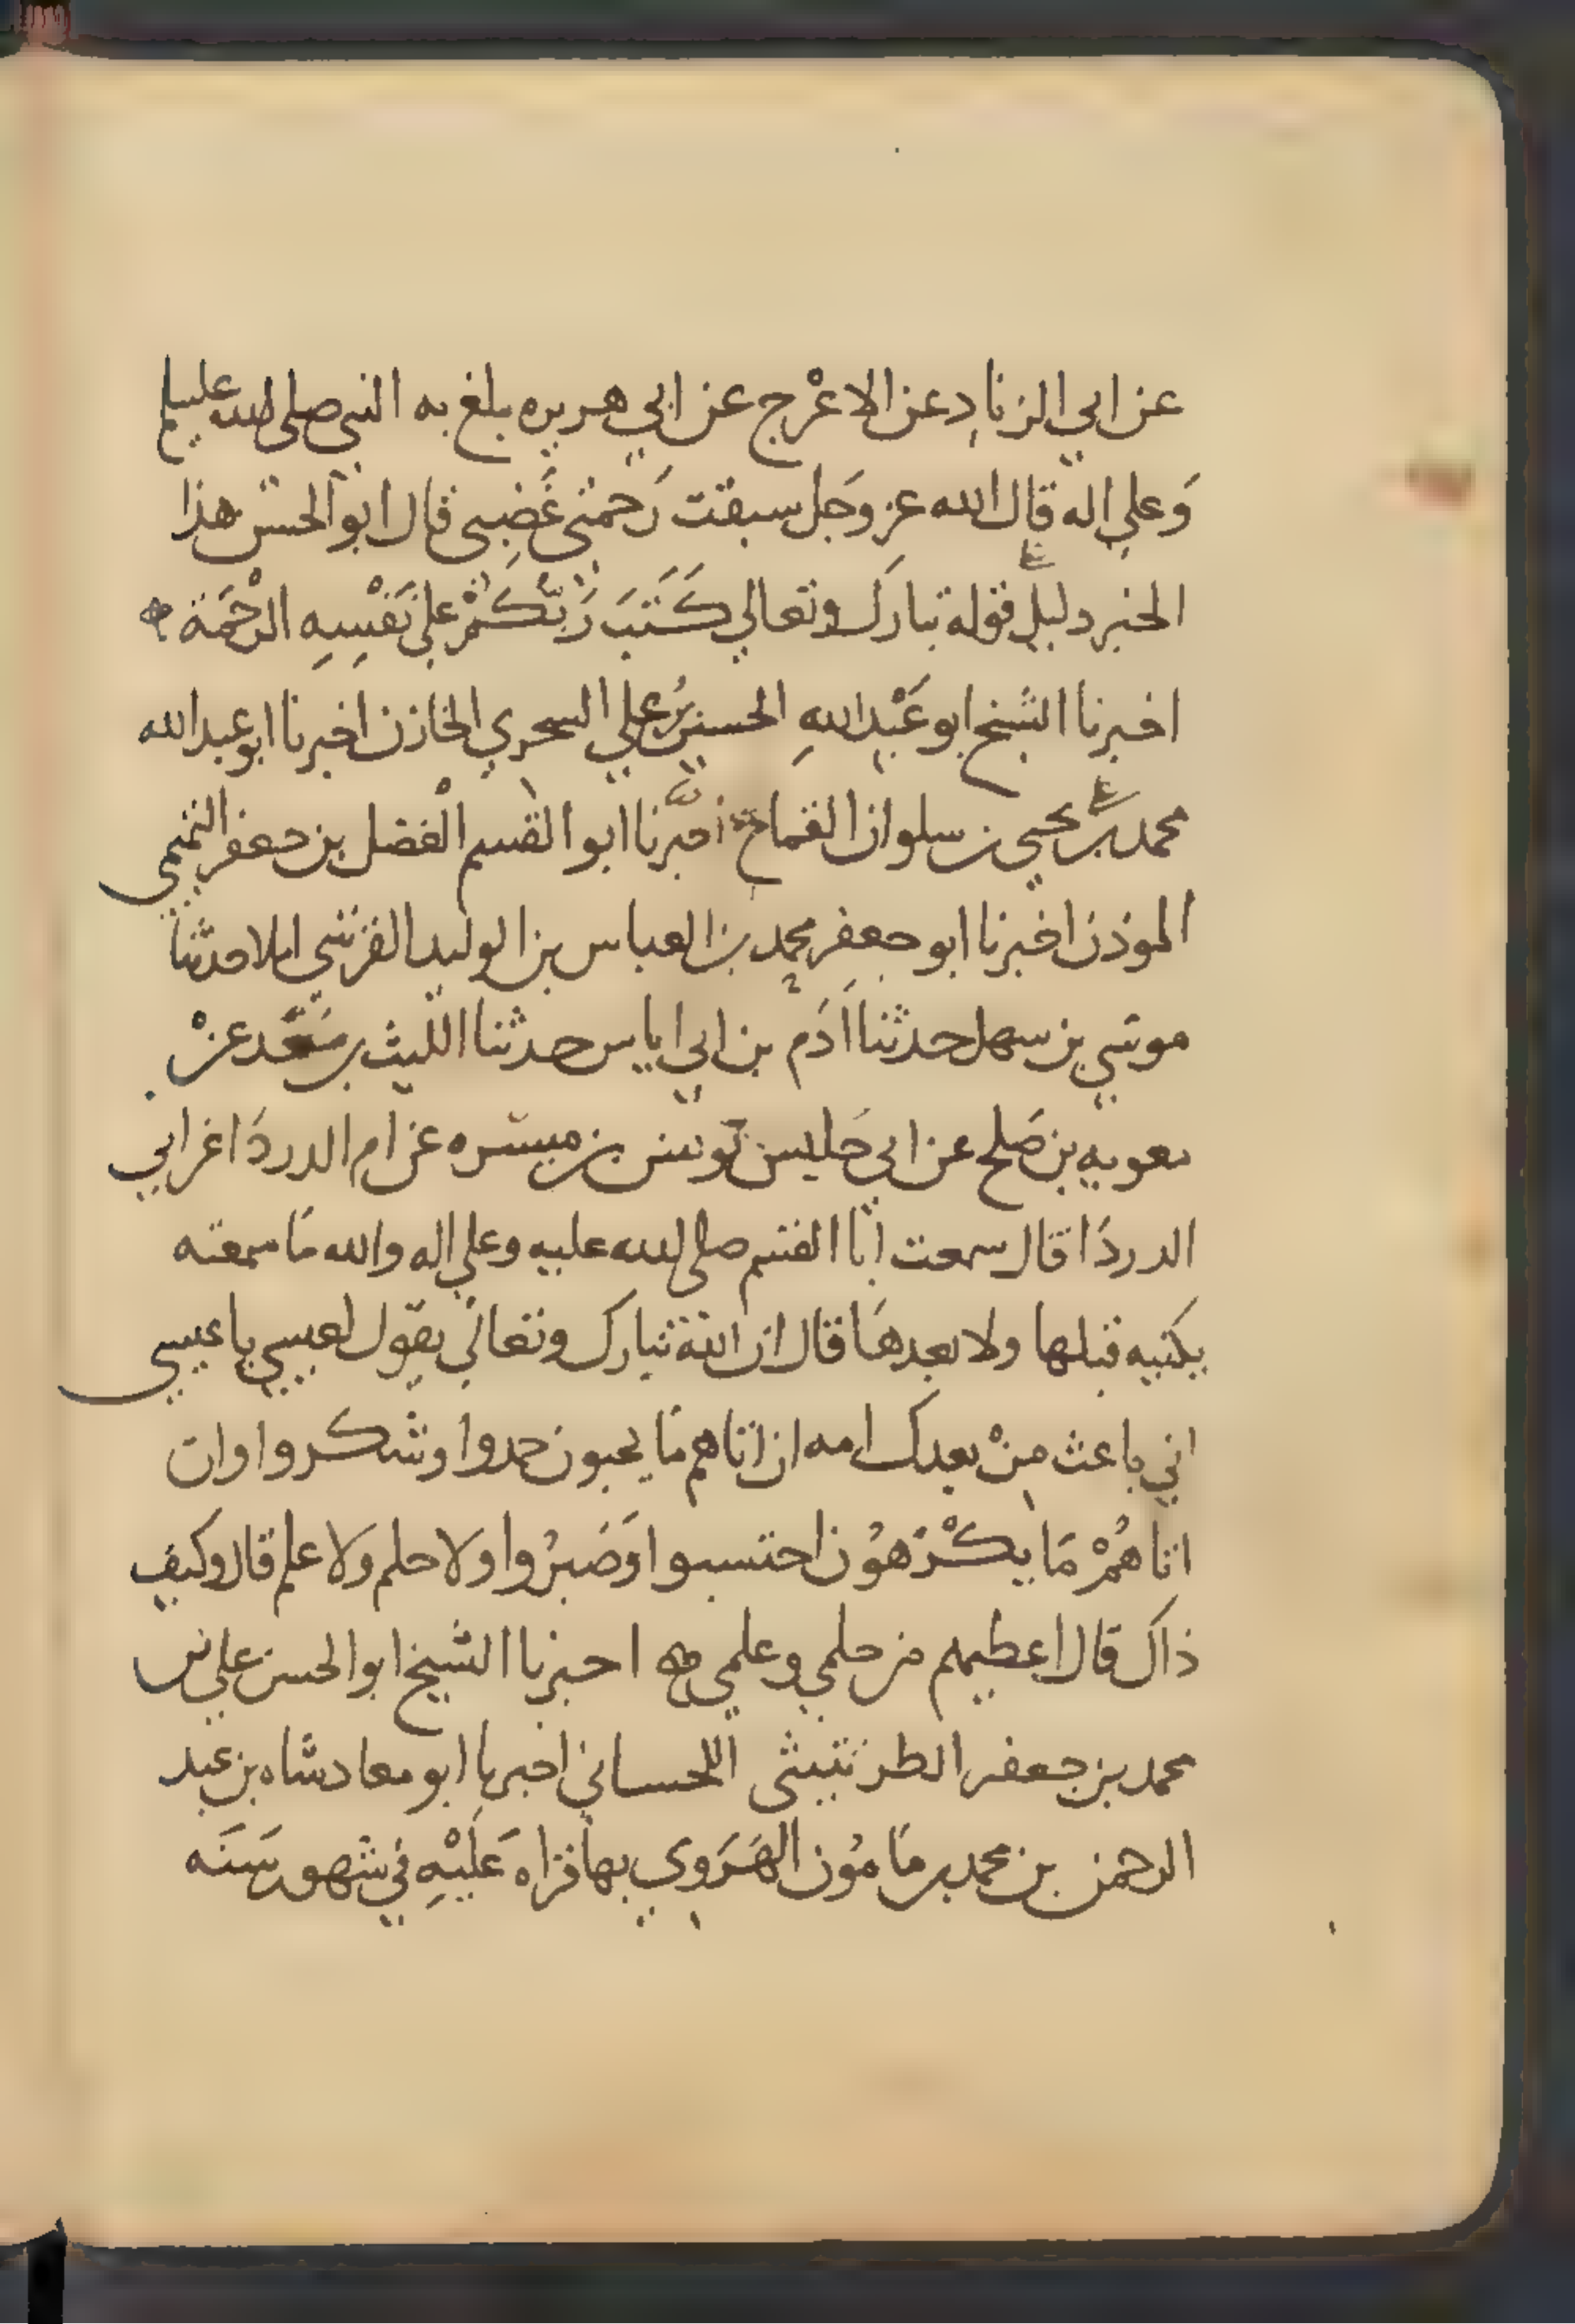 عن ابي الزناد عن الاعْرج عن ابي هريره بلغ به النبي صلى الله عليه
وَعلي اله قال الله عز وَجل سبقت رَحمتي غَضِبي قال ابو الحسن هذا
الخبر دليل قوله تبارك وتعالي كَتَبَ رَبّكُمْ عَلي نَفْسِهِ الرحْمَة
اخبرنا الشيخ ابو عَبْدِ اللهِ الحسين بنُ علي السحري الخازن اخبرنا ابو عبد الله
محمد بن يحيي بن سلوان القماح اخبَّرنا ابو القسم الفْضل بن جعفر التميمي
الموذن اخبرنا ابو جعفر محمد بن العباس بن الوليد القرشي املا حدثنا
موسي بن سهل حدثنا اَدَمْ بن ابي اياس حدثنا الليث بن سَعْد عنْ
معويه بن صَلح عن ابي حَليس يونس بن ميسره عن ام الدردَا عن ابي
الدردَا قال سمعت ابا القسم صلى الله عليه وعلي اله والله مَا سمعته
يكنيه قبلها ولا بعدهَا قال ان الله تبارك وتعالي يقول لعيسي يا عيسي
اني باعث منْ بعدك امه ان اتاهم مَا يحبون حمدوا وشكروا وان
اتاهُمْ مَا يكْرَهوُن احتسبوا وَصَبرُوا ولا حلم وَلا علم قال وكيف
ذاك قال اعطيهم من حلمي وعلمي احبرنا الشيخ ابو الحسن علي بن
محمد بن جعفر الطرثيثي اللحساني اخبرنا ابو معاد شاه بن عبد
الرحمن بن محمد بن مَامُون الهَرَوي بها قراه عَلَيْهِ في شهور سَنَه